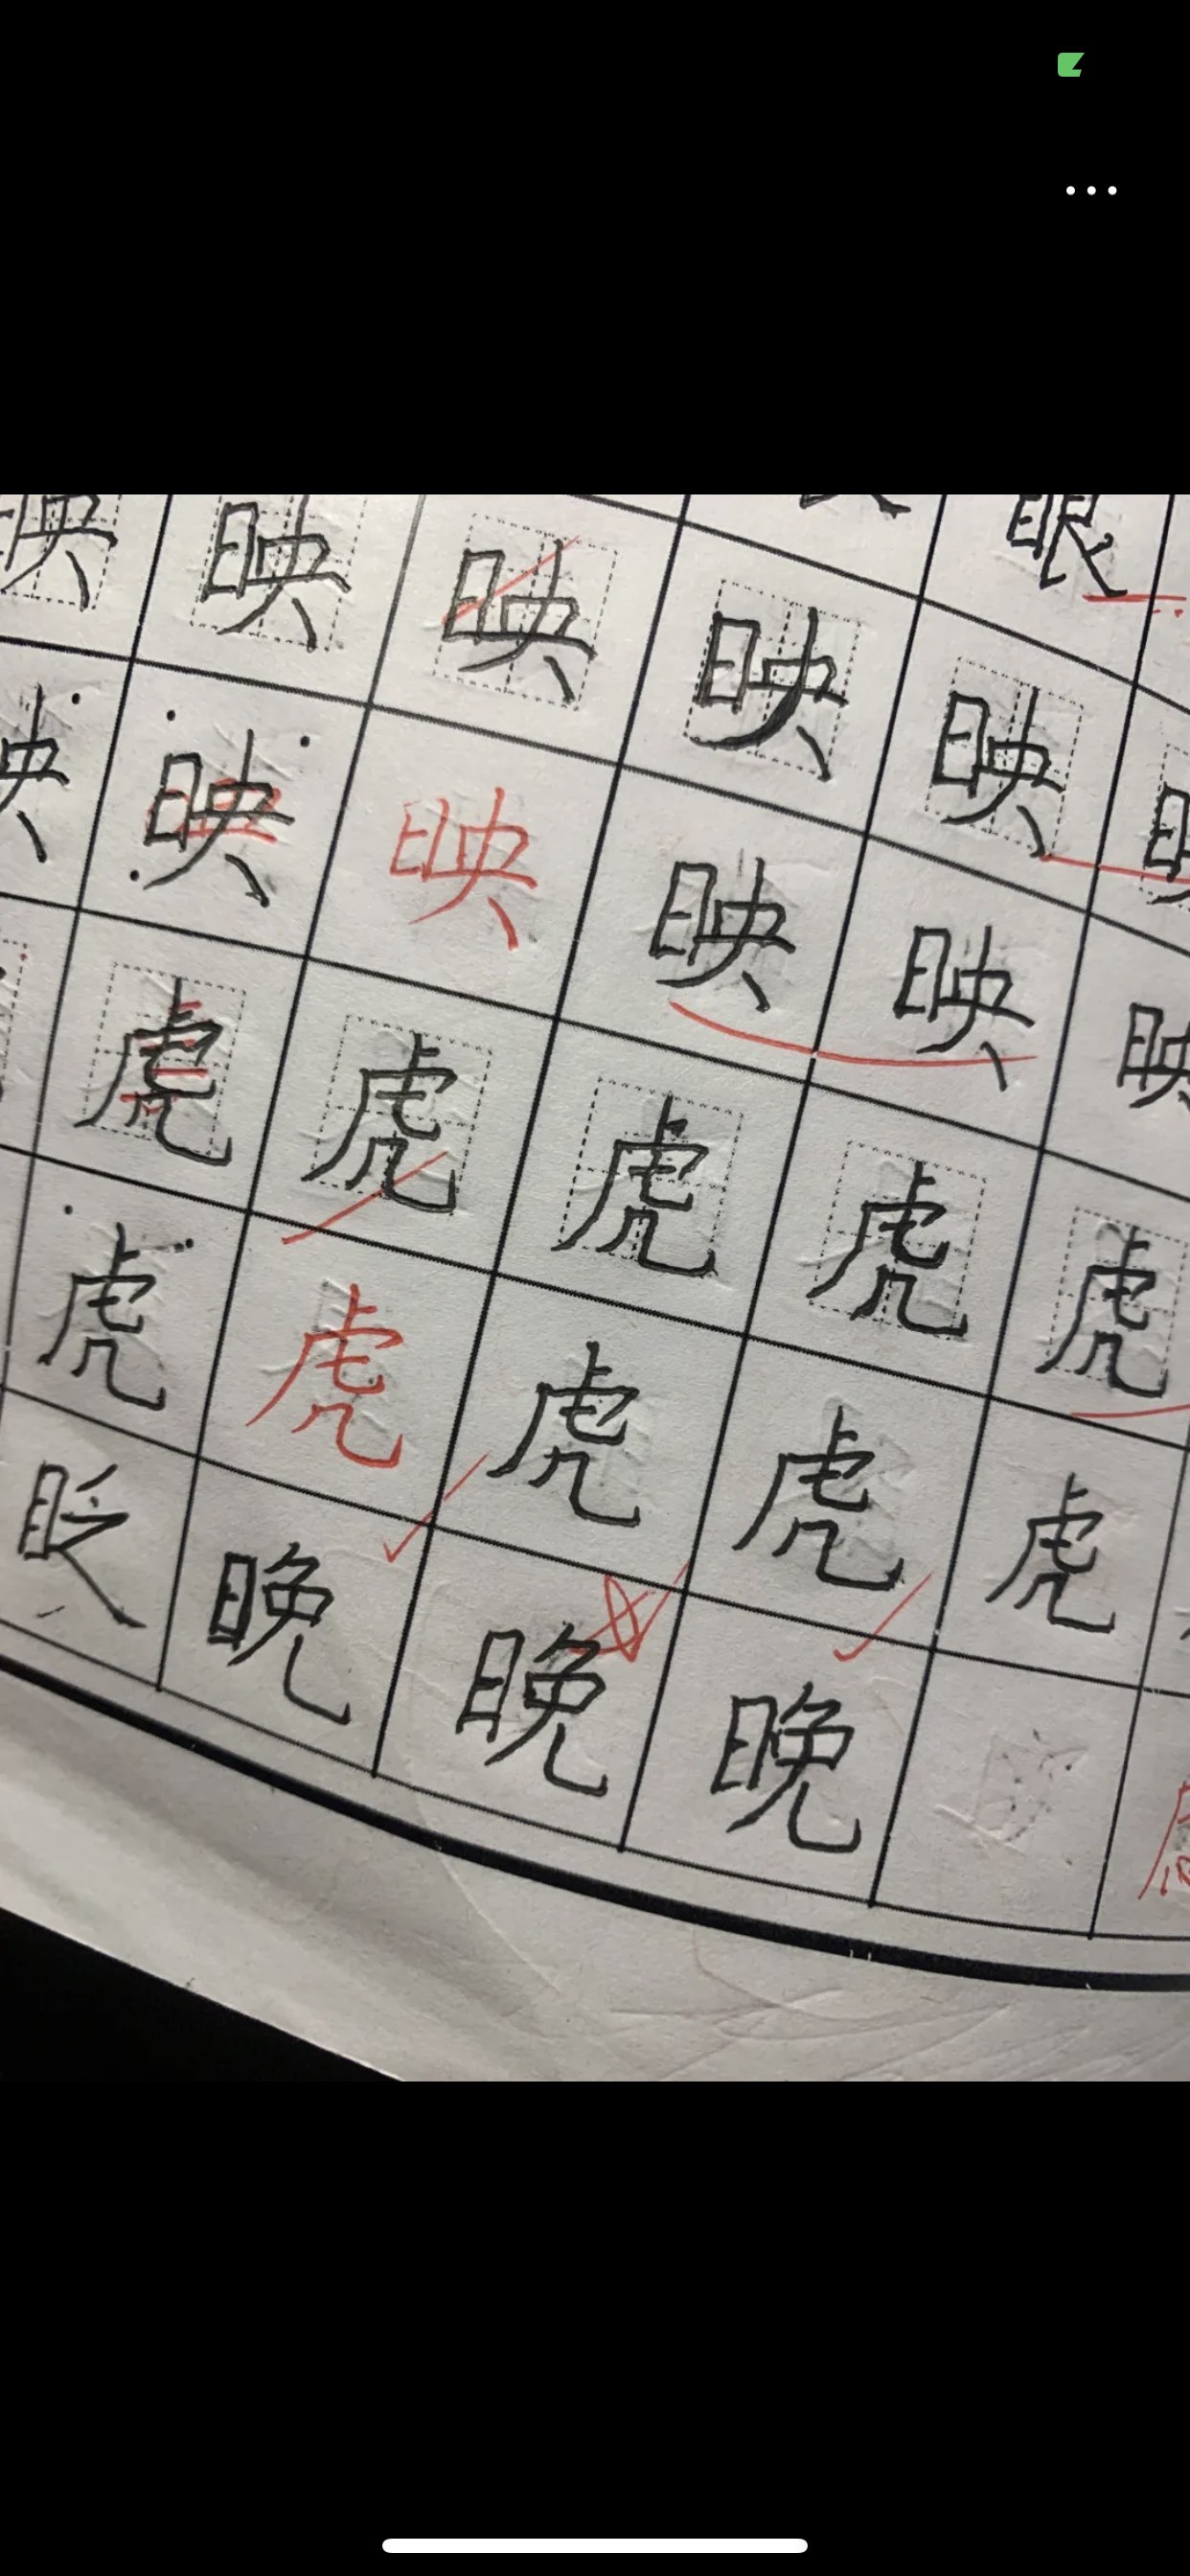 眼
映 映 映 映 映 映
映 映 映 映 映 映
虎 虎 虎 虎 虎
虎 虎 虎 虎 虎
眨 晚 晚 晚